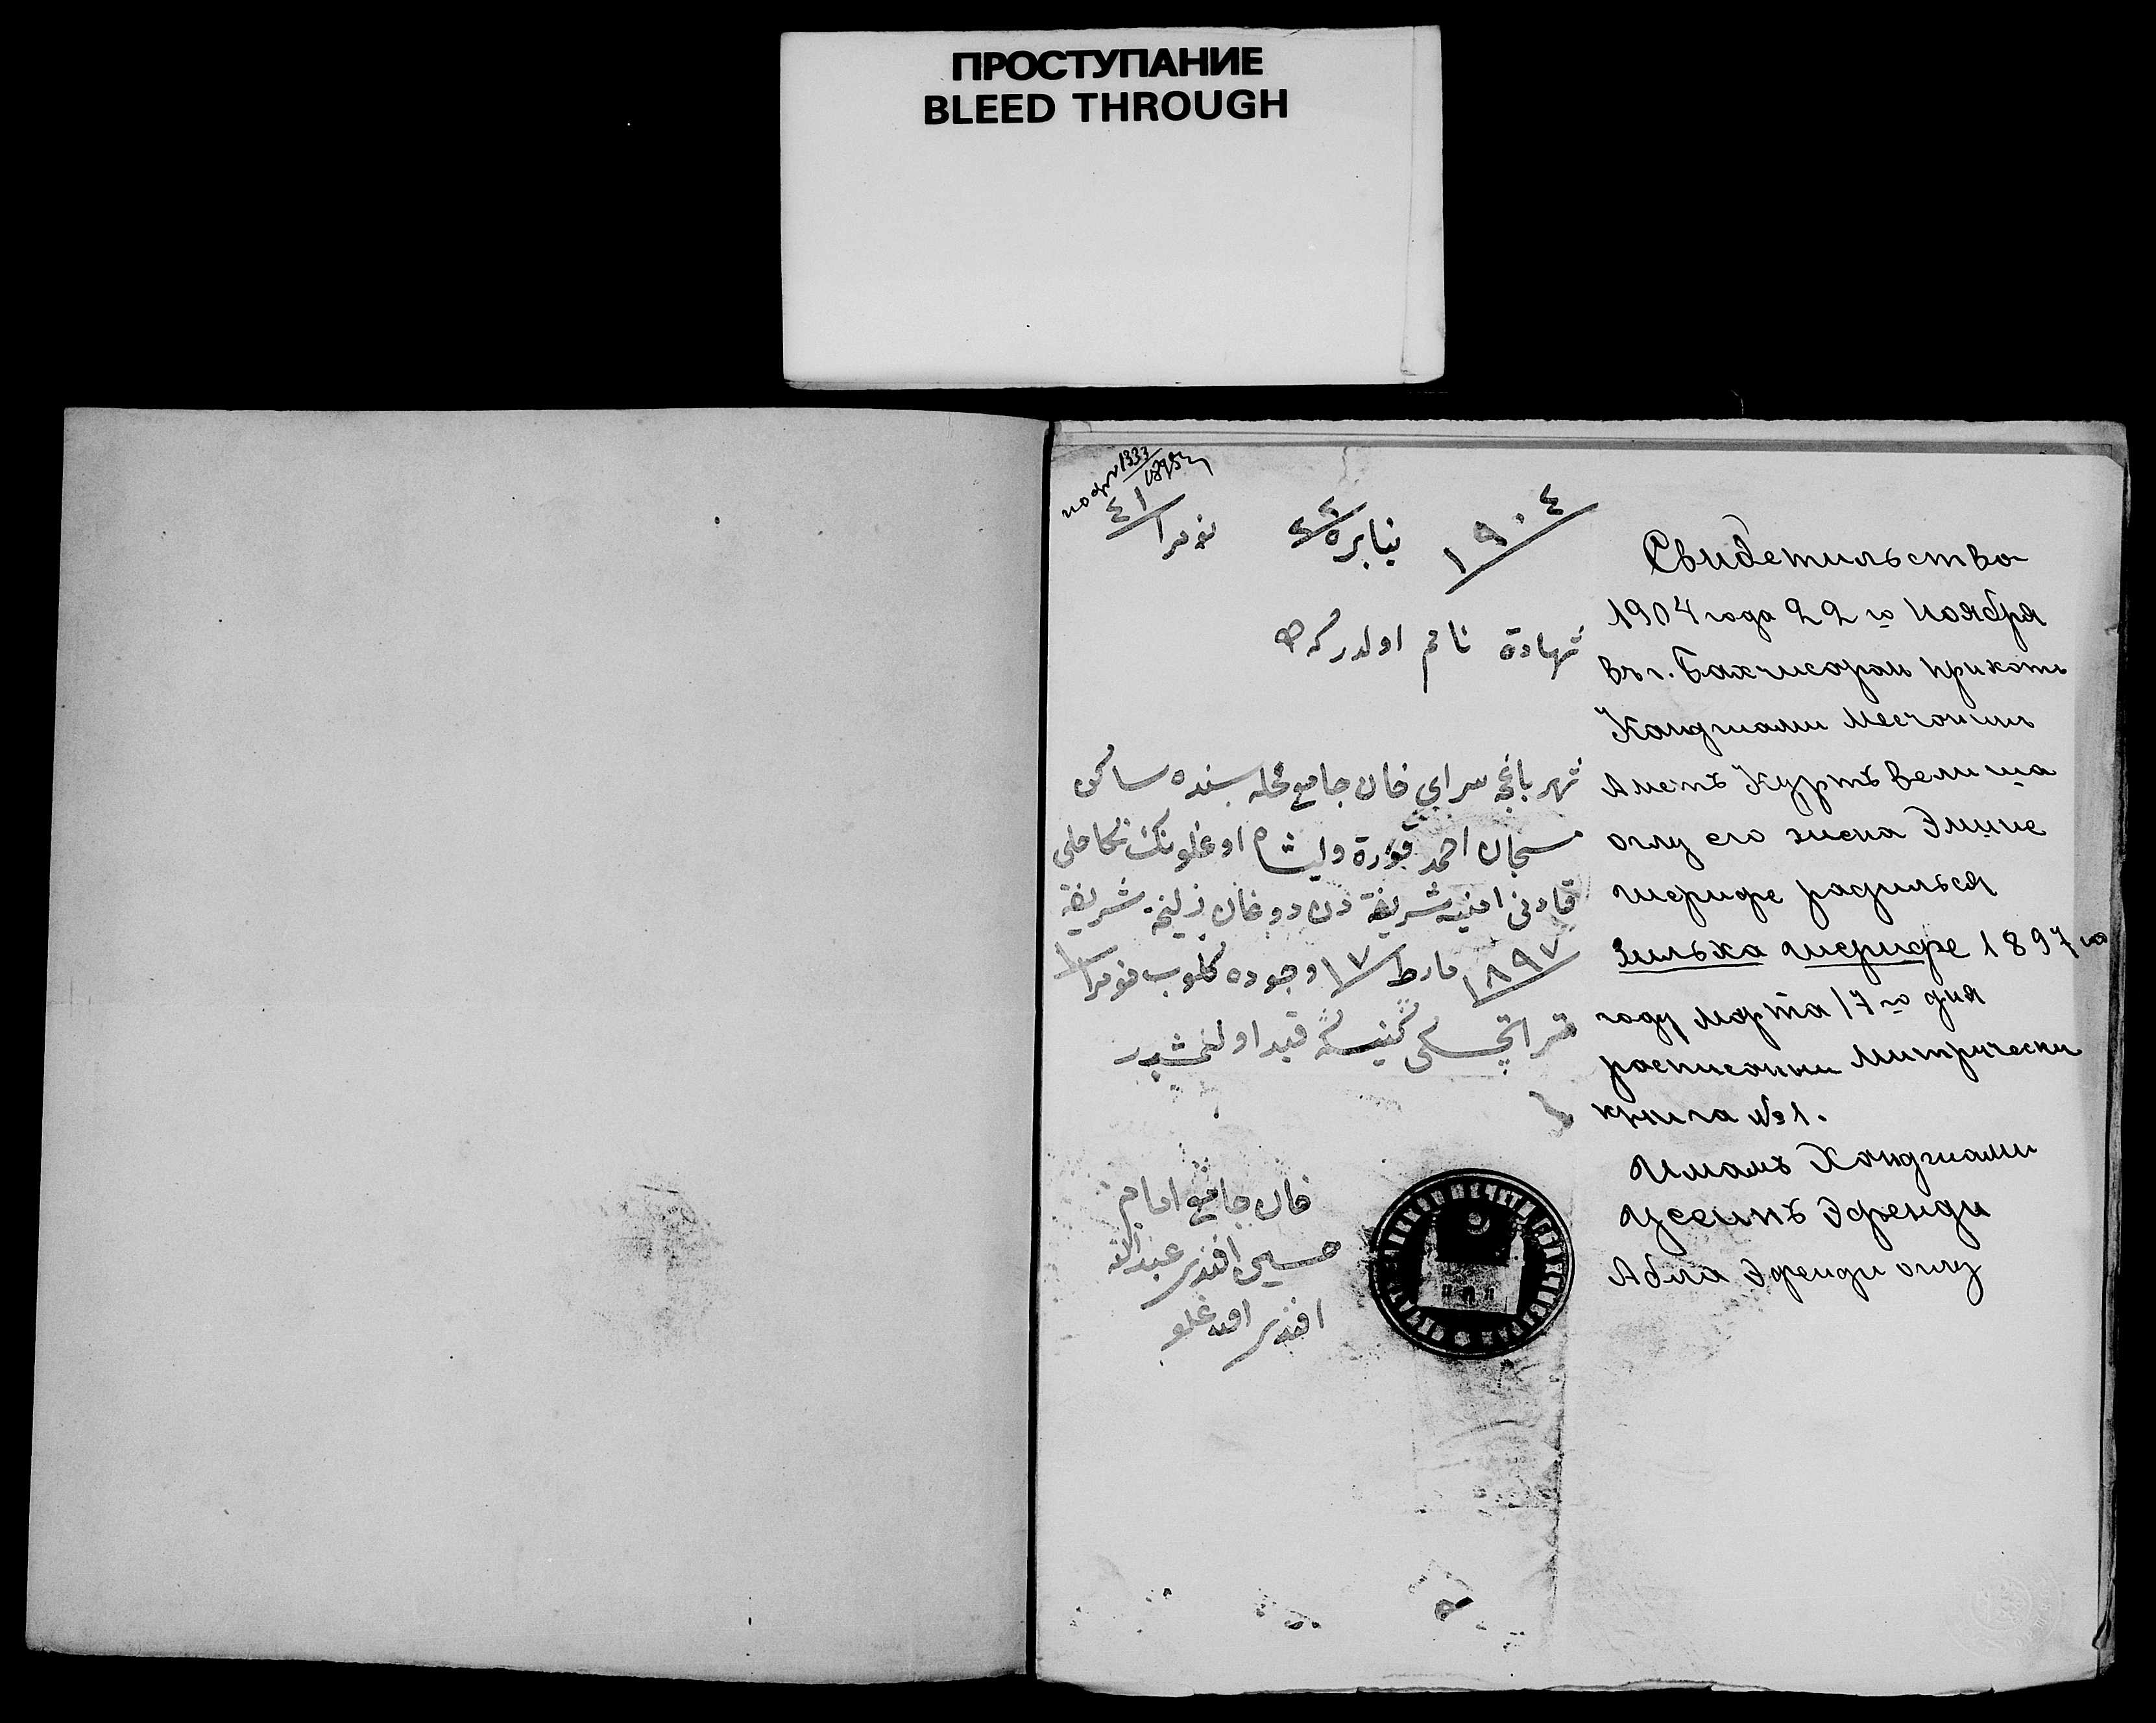 ПРОСТУПАНИЕ
BLEED THROUGH
1333
نومرا ٤١
نيابره ٢٢
١٩٠٤
شهادة نامه اولدركه
شهر باغچه سراي خان جامع محله سنده ساكن
احمد قورة وليشاه اوغلونك نكاحلى
قادنى امنيه شريفة دن دوغان زليخة شريفة
١٨٩٧ مارط ١٧ وجوده كلوب نومرا ١
قيد اولنمشدر
خان جامع امام
حسين افندى عبدالله
افندى اوغلو
Свидетильства
1904 года 22 го Ноября
въ г. Бахчисарай прихоть
Хандгиами месчанин
Аметъ Куртъ велиша
оглу его жена Эмине
шерифе радилься
Зильха шерифе 1897 го
году Марта 17 го дня
расписанни Митрически
книга №1.
Имамъ Хандгиами
Усеинъ Эфенди
Абла Эфенди оглу